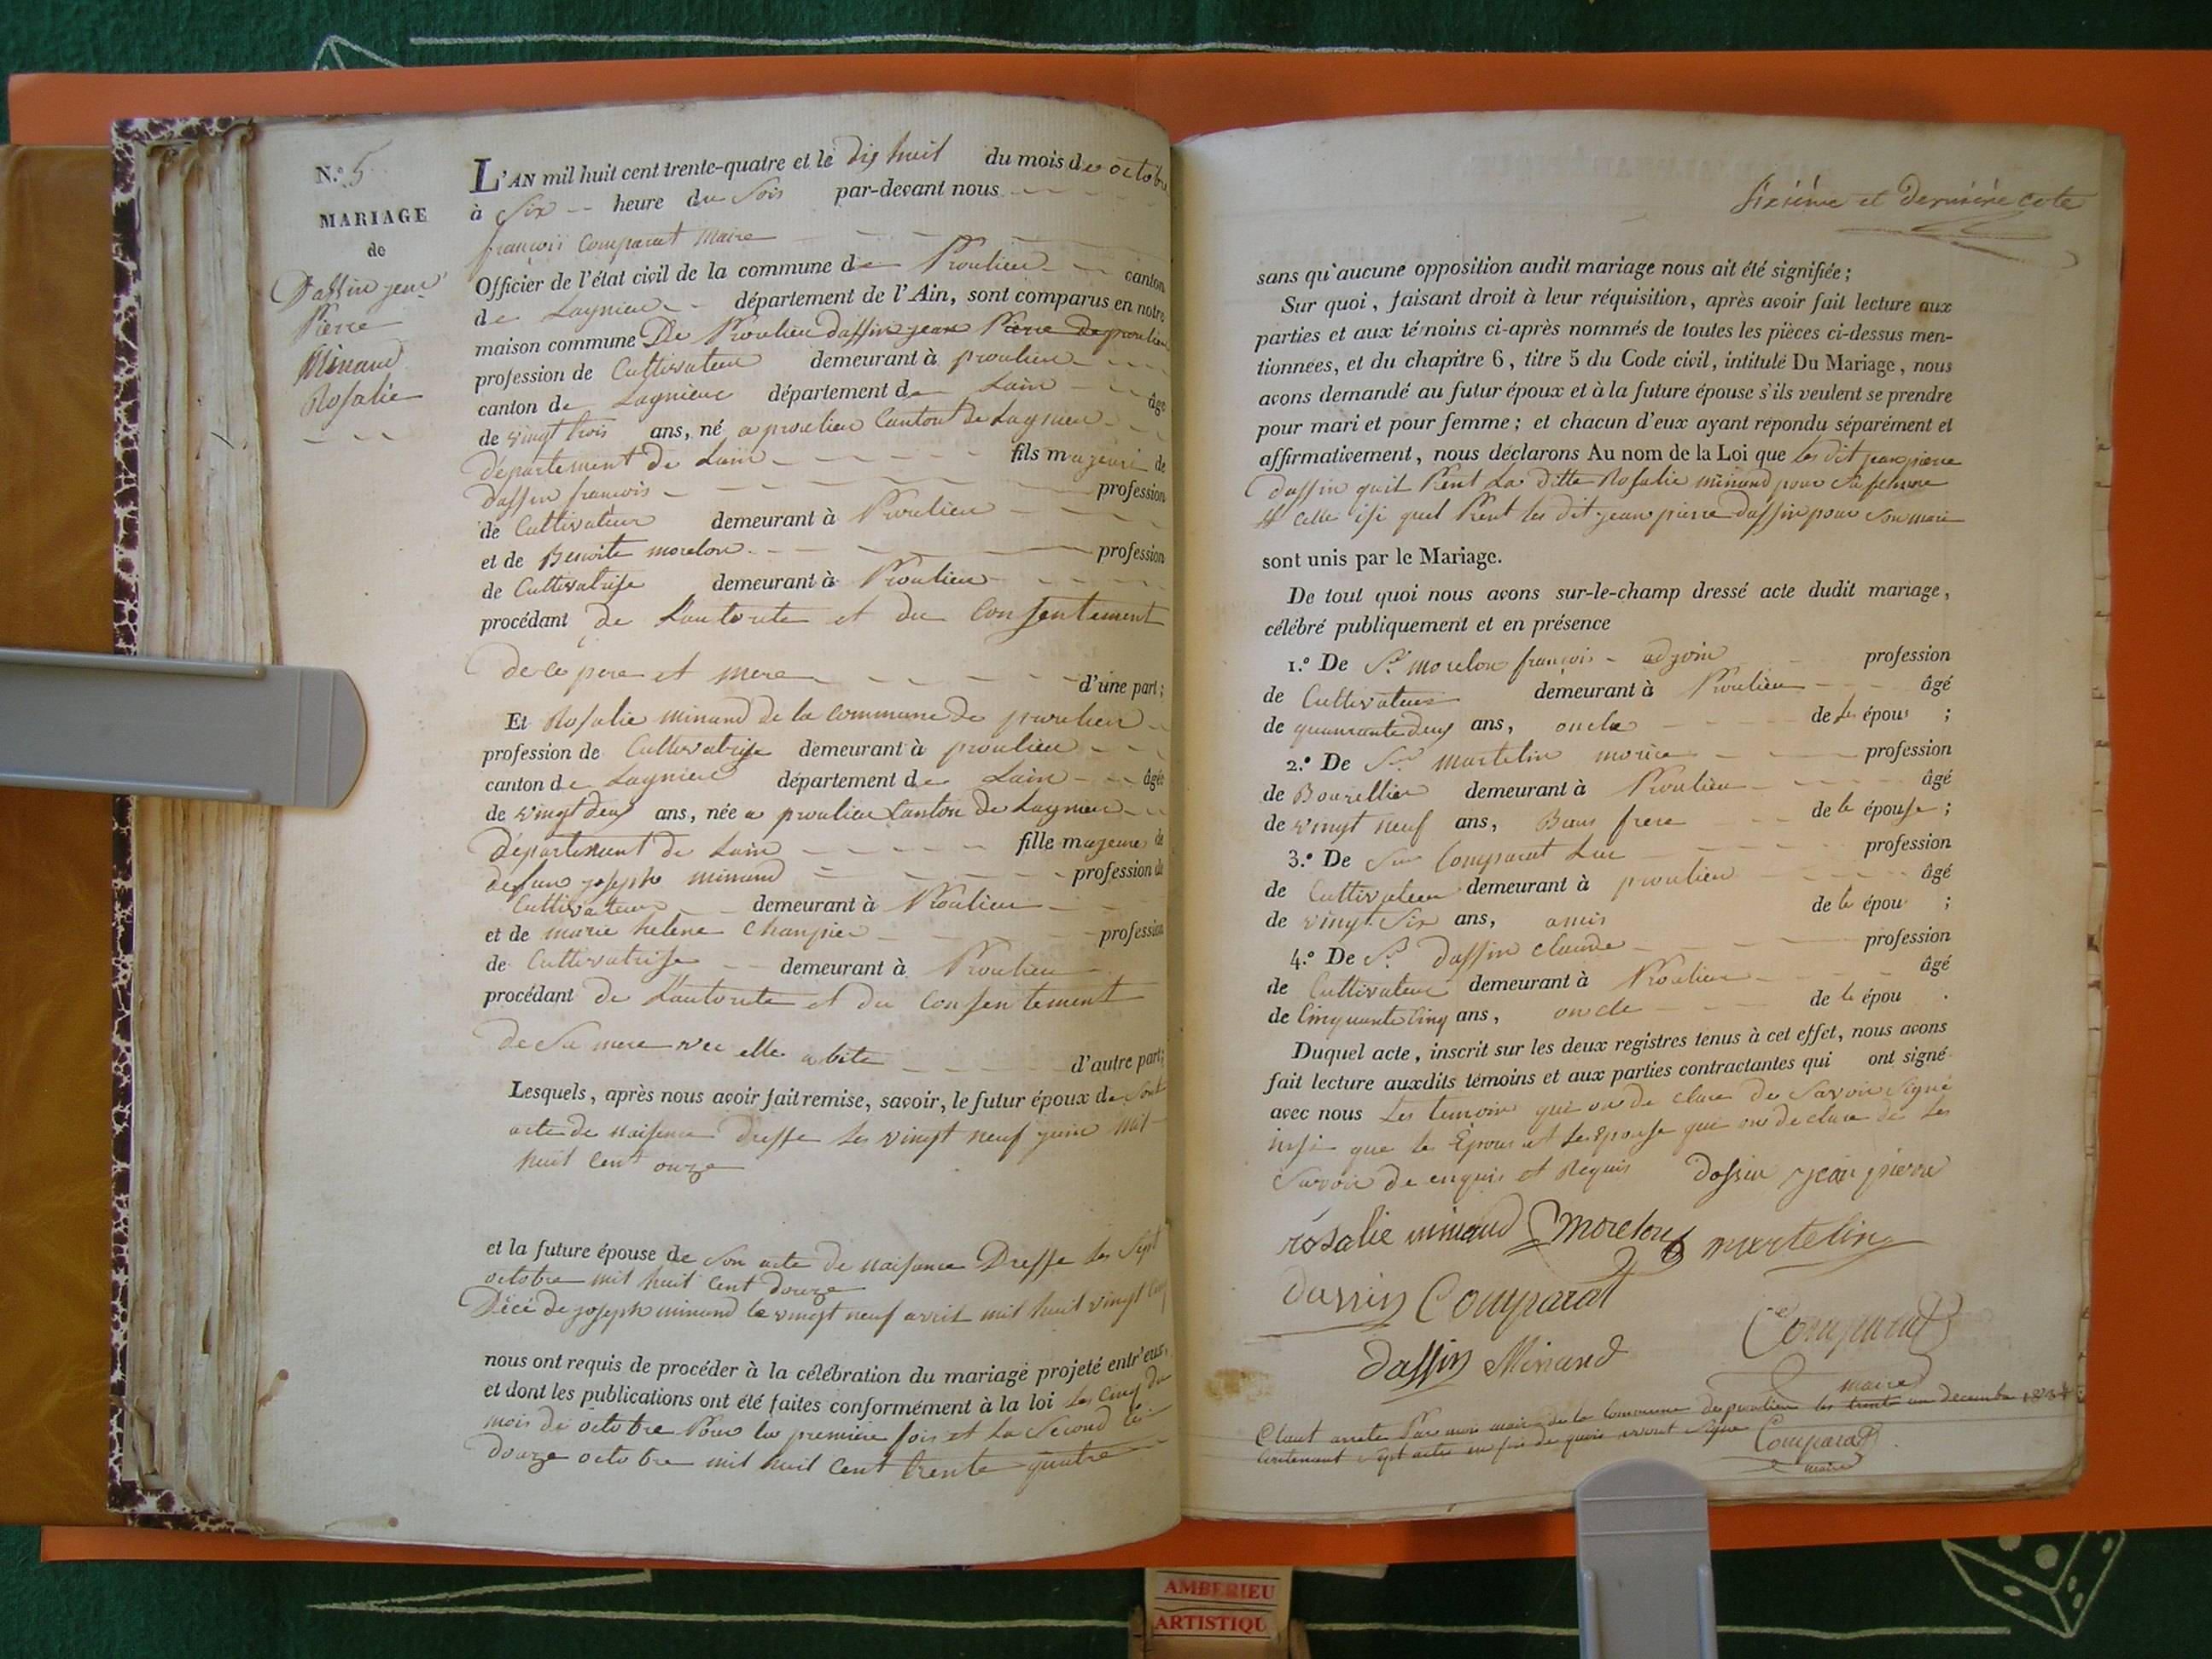 N.º 5
MARIAGE
de
Dassin jean
Pierre
Minand
Rosalie
L'AN mil huit cent trente-quatre et le dix huit du mois de octobre
à Six heure du Soir par-devant nous
françois Comparat Maire
Officier de l'état civil de la commune de Proulieu canton
de Lagnieu département de l'Ain, sont comparus en notre
maison commune De Proulieu dassin jean Pierre de proulieu
profession de Cultivateur demeurant à proulieu
canton de Lagnieu département de Lain âgé
de vingt trois ans, né a proulieu Canton de Lagnieu
département de Lain fils majeur de
dassin françois profession
de Cultivateur demeurant à Proulieu
et de Benoite morelon profession
de Cultivatrise demeurant à Proulieu
procédant de Lautorite et du Consentement
de ce pere et mere d'une part;
Et Rosalie minand de la commune de proulieu
profession de Cultivatrise demeurant à proulieu
canton de Lagnieu département de Lain âgée
de vingt deux ans, née a proulieu Canton de Lagnieu
département de Lain fille majeure de
defun joseph minand profession de
Cultivateur demeurant à Proulieu
et de marie helene Chanpier profession
de Cultivatrise demeurant à Proulieu
procédant de Lautorite et du Consentement
de Sa mere vec elle abite d'autre part;
Lesquels, après nous avoir fait remise, savoir, le futur époux de Sont
acte de naisance Dresse les vingt neuf juin mil
huit Cent onze
et la future épouse de Son acte de naisance Dresse les Sept
octobre mil huit Cent douze
Décé de joseph minand le vingt neuf avril mil huit vingt Cinq
nous ont requis de procéder à la célébration du mariage projeté entr'eux,
et dont les publications ont été faites conformément à la loi les Cinq du
mois de octobre Pour la premiere fois et La Second le
douze octobre mil huit Cent trente quatre
Sixième et Dernière cote
sans qu'aucune opposition audit mariage nous ait été signifiée;
Sur quoi, faisant droit à leur réquisition, après avoir fait lecture aux
parties et aux témoins ci-après nommés de toutes les pièces ci-dessus men-
tionnées, et du chapitre 6, titre 5 du Code civil, intitulé Du Mariage, nous
avons demandé au futur époux et à la future épouse s'ils veulent se prendre
pour mari et pour femme; et chacun d'eux ayant répondu séparément et
affirmativement, nous déclarons Au nom de la Loi que les dit jean pierre
dassin quil Prent La ditte Rosalie minand pour Sa femme
et Celle isi quel Prent les dit jean pierre dassin pour Son mari
sont unis par le Mariage.
De tout quoi nous avons sur-le-champ dressé acte dudit mariage,
célébré publiquement et en présence
1.º De Sr morelon françois adjoin profession
de Cultivateur demeurant à Proulieu âgé
de quarante deux ans, oncle de les épous ;
2.º De Sr martelin morice profession
de Bourellier demeurant à Proulieu âgé
de vingt neuf ans, Baus frere de le épouse ;
3.º De Sr Comparat Luc profession
de Cultivateur demeurant à proulieu âgé
de vingt Six ans, amis de le épou ;
4.º De Sr dassin claude profession
de Cultivateur demeurant à Proulieu âgé
de Cinquante Cinq ans, oncle de le épou .
Duquel acte, inscrit sur les deux registres tenus à cet effet, nous avons
fait lecture auxdits témoins et aux parties contractantes qui ont signé
avec nous Les temoins qui on de clare de Savoir Signé
insi que le Epous et Les Epouse qui on de clare de les
Savoir de enquis et Requis dassin jean pierre
rosalie minand Morelon martelin
dassin Comparat
Comparat
dassin Minand
maire
Clout arrete Par moi maire de la Commune de proulieu les trente un decembre 1834
Contenant Sept actes en foi de quoi avont Signe Comparat
maire
AMBERIEU
ARTISTIQU